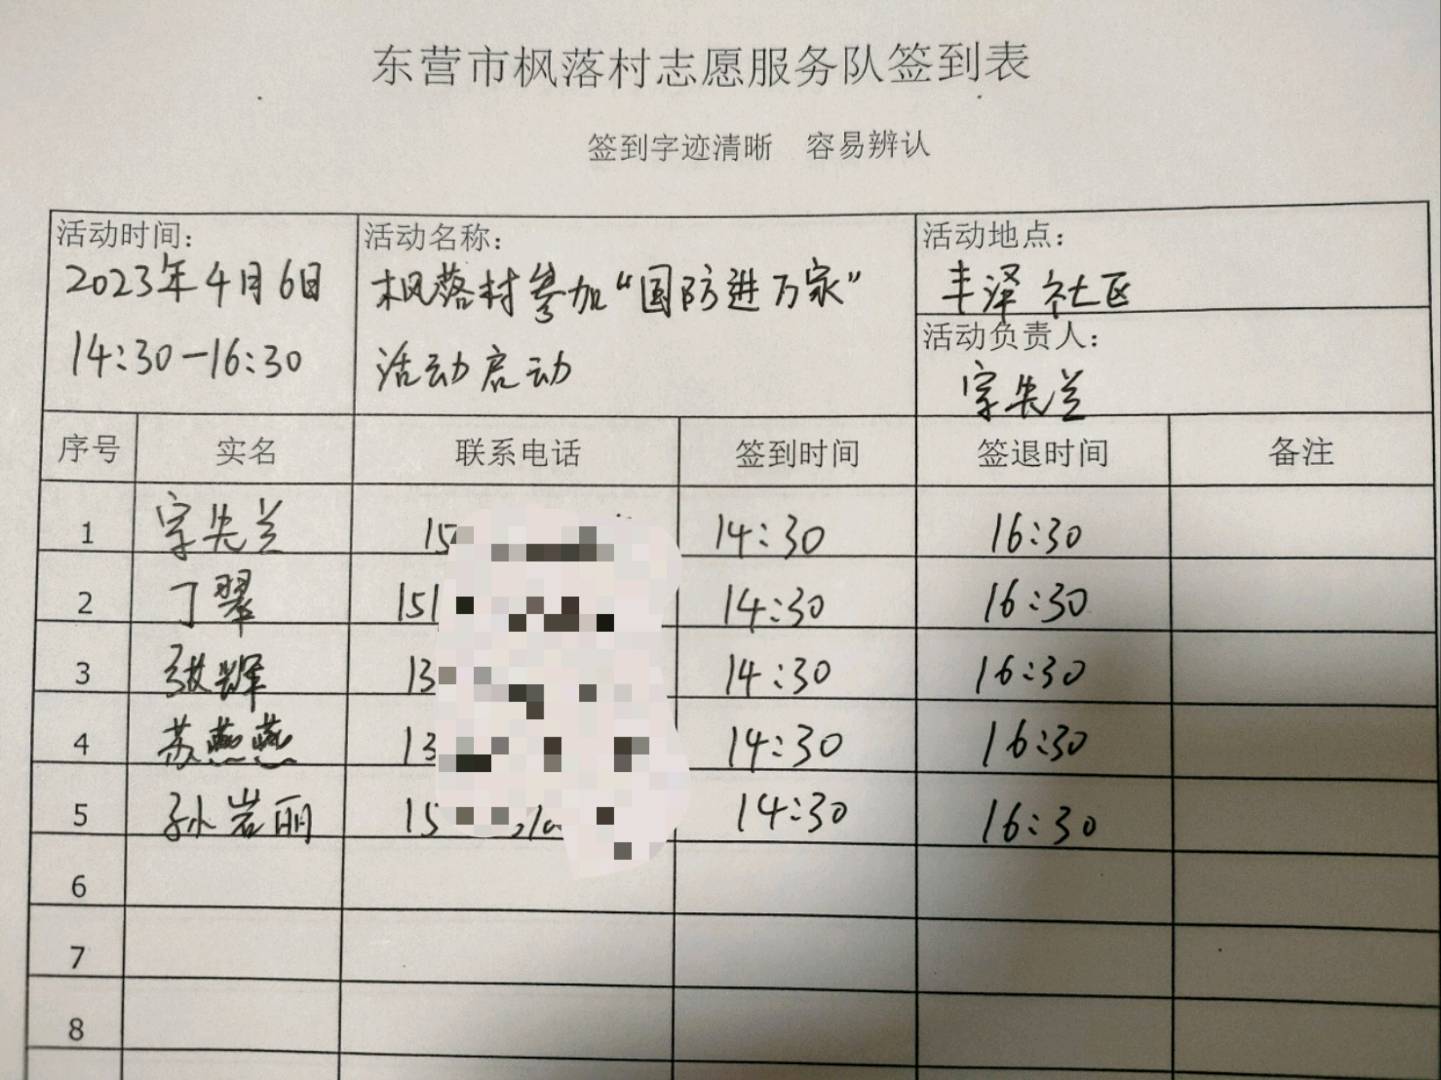 东营市枫落村志愿服务队签到表
签到字迹清晰 容易辨认
活动时间:
2023年4月6日
14:30-16:30
活动名称:
枫落村参加“国防进万家”
活动启动
活动地点:
丰泽社区
活动负责人:
字先兰
序号 实名 联系电话 签到时间 签退时间 备注
1 字先兰 15 14:30 16:30
2 丁翠 151 14:30 16:30
3 张辉 13 14:30 16:30
4 苏燕燕 13 14:30 16:30
5 孙岩丽 15 14:30 16:30
6
7
8